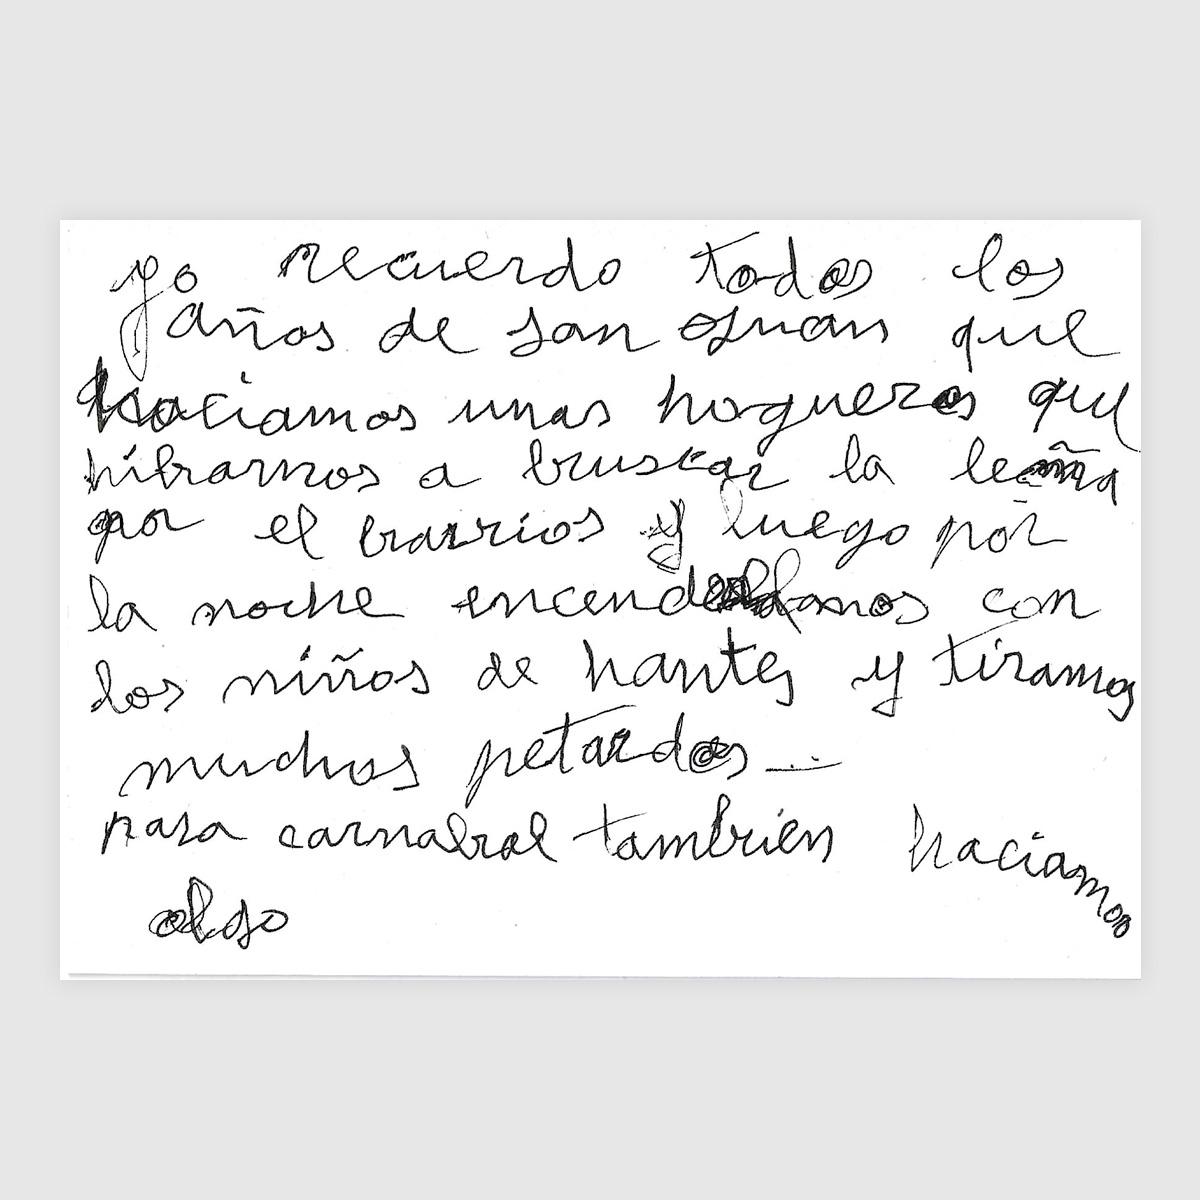 yo recuerdo todos los
años de san Juan que
haciamos unas hogueras que
hibamos a buscar la leña
por el barrios y luego por
la noche encendíamos con
los niños de hantes y tiramos
muchos petardos...
para carnabal también haciamos
algo